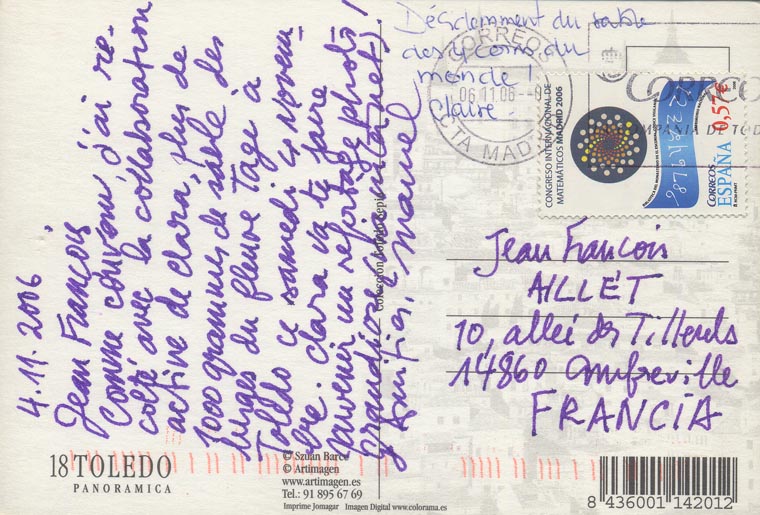 4.11.2006
Jean François
Comme convenu, j'ai re-
colté avec la collaboration
active de Clara, plus de
1000 grammes de sable des
berges du fleuve Tage à
Toledo ce samedi 4 novem-
bre. Clara va te faire
parvenir un reportage photo
grandiose
Amitiés, Manuel
du sable
des 4 coins du
monde !
Claire.
CORREOS
06.11.06
CTA MADRID
CONGRESO INTERNACIONAL DE
MATEMÁTICOS MADRID 2006
CORREOS
ESPAÑA 0,57€
CORREOS
COMPAÑIA DE TODOS
Jean François
AILLET
10, allée des Tilleuls
14860 Amfreville
FRANCIA
18 TOLEDO
PANORAMICA
© Szulan Barce
© Artimagen
www.artimagen.es
Tel.: 91 895 67 69
Imprime Jomagar Imagen Digital www.colorama.es
8 436001 142012